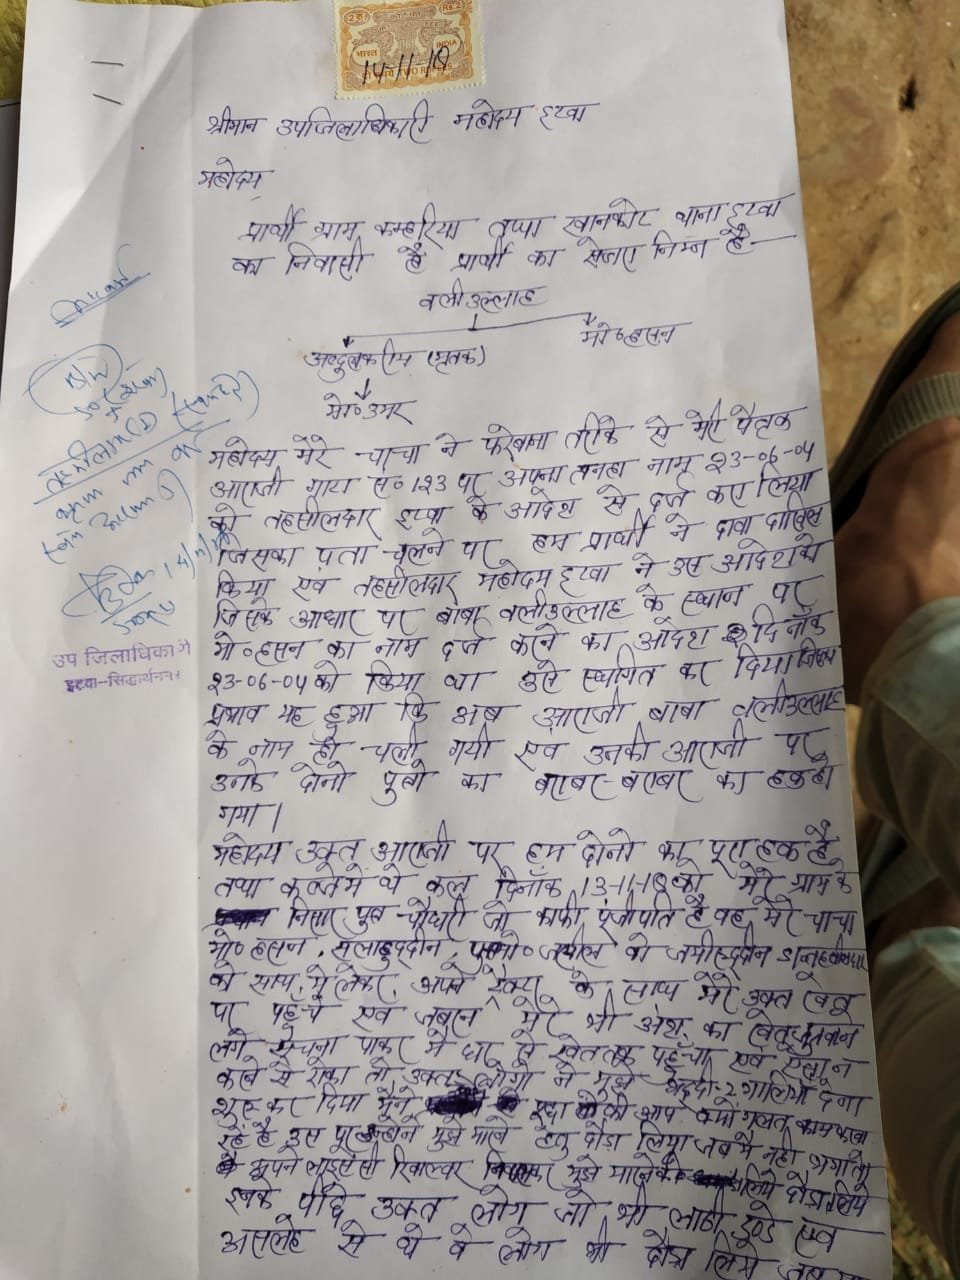 2 रु. Rs.2
भारत INDIA
TWO RUPEES
14-11-18
श्रीमान उपजिलाधिकारी महोदय इटवा
महोदय
प्रार्थी ग्राम कम्हरिया तप्पा खानकोट थाना इटवा
का निवासी है प्रार्थी का सेजरा निम्न है-
वलीउल्लाह
अब्दुलकरीम (मृतक) मो० हसन
मो० उमर
महोदय मेरे चाचा ने फरेबाना तरीके से मेरी पैतृक
आराजी गाटा सं० 123 पर अपना तनहा नाम 23-06-04
को तहसीलदार इटवा के आदेश से दर्ज करा लिया
जिसका पता चलने पर हम प्रार्थी ने दावा दाखिल
किया एवं तहसीलदार महोदय इटवा ने उस आदेश को
जिसके आधार पर बाबा वलीउल्लाह के स्थान पर
मो० हसन का नाम दर्ज करने का आदेश दिनाँक
23-06-04 को किया था उसे स्थगित कर दिया जिसका
प्रभाव यह हुआ कि अब आराजी बाबा वलीउल्लाह
के नाम हो चली गयी एवं उनकी आराजी पर
उनके दोनो पुत्रो का बराबर-बराबर का हक हो
गया।
महोदय उक्त आराजी पर हम दोनो का पूरा हक है
तथा कब्जे में थे कल दिनाँक 13-11-18 को मेरे ग्राम के
निसार पुत्र चौधरी जो काफी पूंजीपति है वह मेरे चाचा
मो० हसन, सलाहुद्दीन, जमील को जमीरुद्दीन
को साथ में लेकर, अपने ट्रैक्टर के साथ मेरे उक्त खेत
पर पहुँचे एवं जबरन मेरे भी अंश का खेत जुतवाने
लगे सूचना पाकर मै घर से खेत तक पहुँचा एवं ऐसा न
करने से रोका तो उक्त लोगो ने मुझे भद्दी-2 गालियाँ देना
शुरू कर दिया मैने कहा की आप क्यों गलत काम करवा
रहे है इस पर उन्होने मुझे मारने हेतु दौड़ा लिया जब मै नही भगा तो
अपने लाइसेंसी रिवाल्वर निकालकर मुझे मारने के लिये दौड़ा लिये
इनके पीछे उक्त लोग जो भी लाठी डंडे एवं
असलहे से थे वे लोग भी दौड़ा लिये जब
तहसीलदार
14/11/18
उप जिलाधिकारी
इटवा-सिद्धार्थनगर